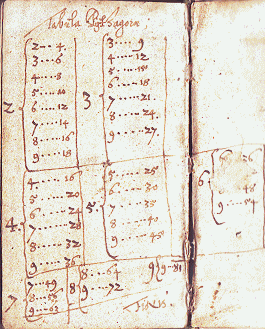 Tabula Pythagorea
2
2---- 4
3---- 6
4---- 8
5---- 10
6---- 12
7---- 14
8---- 16
9---- 18
3
3---- 9
4---- 12
5---- 15
6---- 18
7---- 21
8---- 24
9---- 27
4.
4. 16
5---- 20
6---- 24
7---- 28
8---- 32
9---- 36
5.
5---- 25
6---- 30
7---- 35
8---- 40
9---- 45
6.
48
9---- 54
7
7---49
8---56
9---63
8
8---- 64
9---- 72
9{9---81
FINIS.